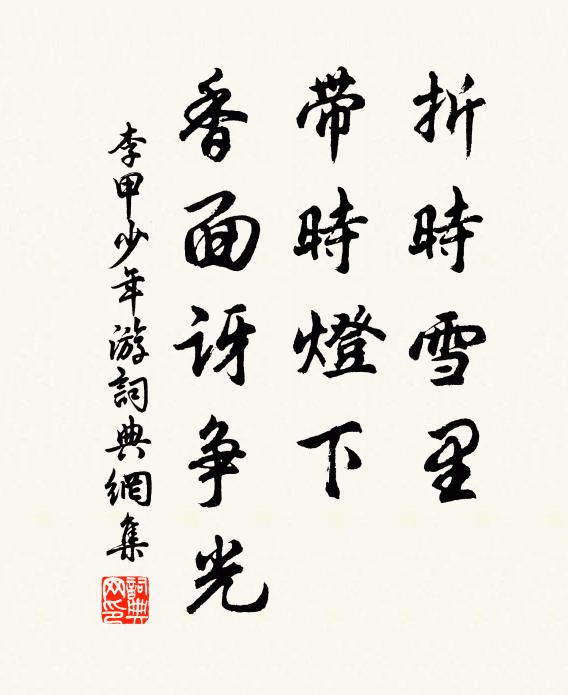 折時雪里
带時燈下
香面讶争光
李甲少年游詞典網集
詞典網印